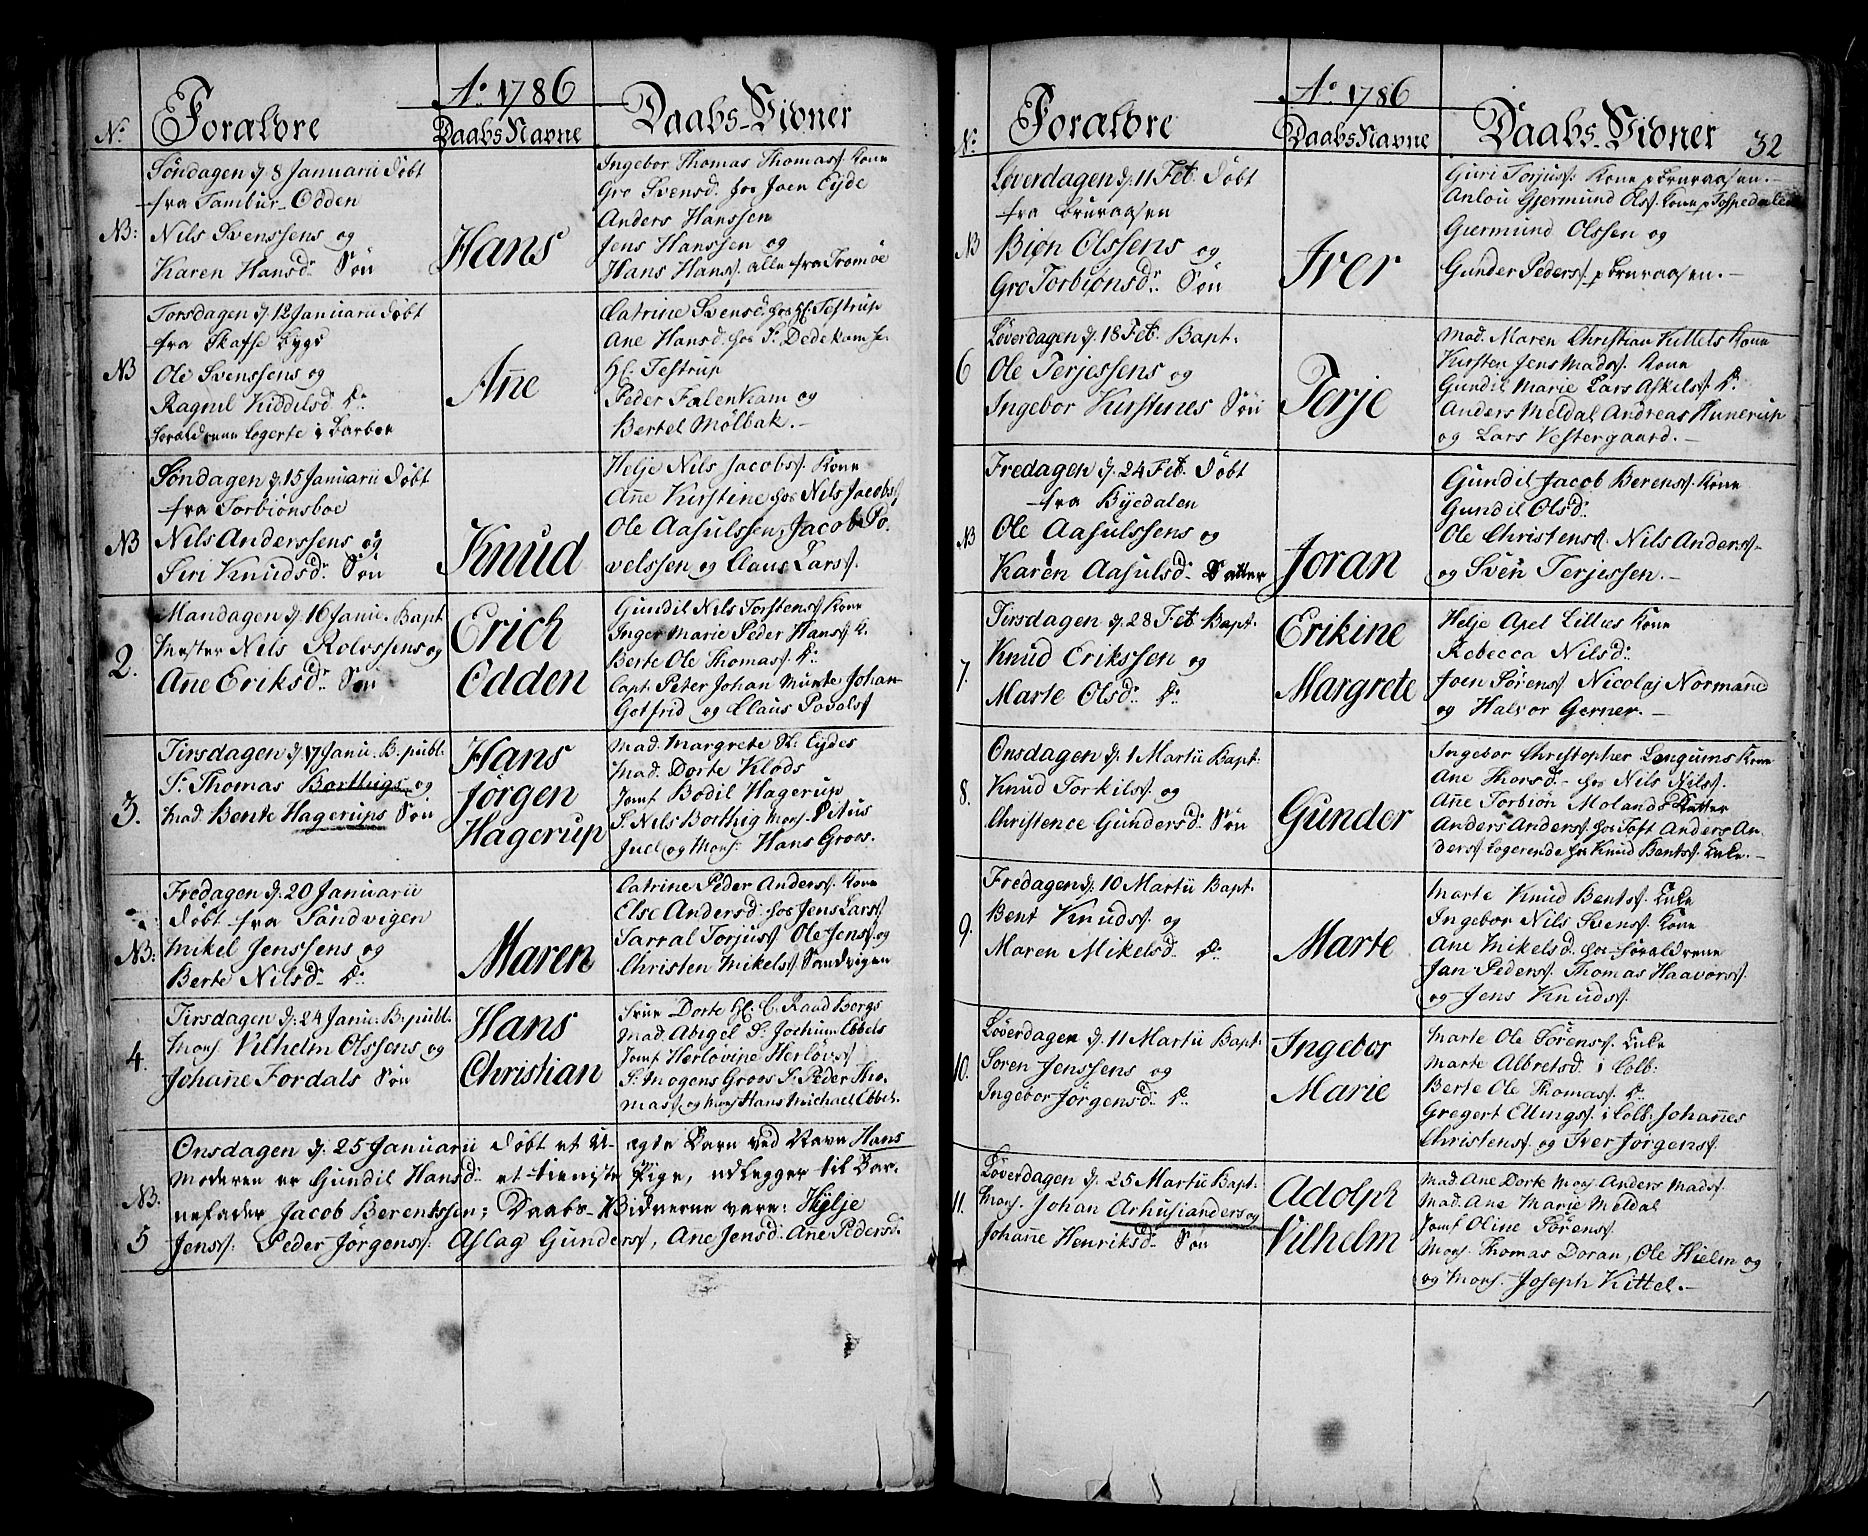 Ao 1786
No Forældre
Daabs Navne
Daabs-Vidner
NB:
Søndagen d. 8 Januarii døbt
fra Tambur-Odden
Nils Svenssens og
Karen Hansdr. Søn
Hans
Ingebor Thomas Thomass. Kone
Gro Svensd. hos Joen Eyde
Anders Hanssen
Jens Hanssen og
Hans Hanss. alle fra Tromøe
NB
Torsdagen d. 12 Januarii døbt
fra Skafse Bygd
Ole Svenssens og
Ragnil Kiddilsd. Dr.
Forældrene logerte i Barboe
Añe
Catrine Svensd. hos Hl. Testrup
Ane Hansd. hos S. Dedekam se.
Hl. Testrup
Peder Falenkam og
Bertel Mølbak.-
NB
Søndagen d. 15 Januarii døbt
fra Torbiønsboe
Nils Anderssens og
Siri Knudsdr. Søn
Knud
Helje Nils Jacobss. Kone
Añe Kirstine hos Nils Jacobss.
Ole Aasulssen, Jacob Po-
velssen og Claus Larss.
2.
Mandagen d. 16 Janu. Bapt
Mester Nils Rolvssens og
Añe Eriksdr. Søn
Erich
Odden
Gundil Nils Torstenss. Kone
Inger Marie Peder Hanss. K.
Berte Ole Thomass. Do.
Capt. Peter Johan Munte Johan
Gotfrid og Claus Povelss.
3.
Tirsdagen d. 17 Janu. B. publ.
Sr. Thomas Borthigs og
Mad. Bente Hagerups Søn
Hans
Jørgen
Hagerup
Mad. Margrete Sl. Eydes
Mad. Dorte Klods
Jomf. Bodil Hagerup
Sr. Nils Borthig Mons. Vitus
Juel og Mons. Hans Groes.
NB:
Fredagen d. 20 Januarii
døbt fra Sandvigen
Mikel Jenssens og
Berte Nilsd. Dr.
Maren
Catrine Peder Anderss. Kone
Else Andersd. hos Jens Larss.
Tarral Torjuss. Ole Jenss. og
Christen Mikelss. Sandvigen
4.
Tirsdagen d. 24 Janu. B. publ.
Mons. Vilhelm Olssens og
Johañe Fordals Søn
Hans
Christian
Frue Dorte Hl. C. Raad Bergs
Mad. Abigel Sr. Jochum Ebbels
Jomf. Herlovine Herlovss.
Sr. Mogens Groes Sr. Peder Tho-
mass. og Mons. Hans Michael Ebbel.
NB.
5
Onsdagen d. 25 Januarii døbt et U-ægte Barn ved Navn Hans
Moderen er Gundil Hansd. et tieniste Pige, udlegger til Bar-
nefader Jacob Berentssen; Daabs-Vidnerne vare: Hylje
Jenss. Peder Jørgenss. Aslag Gunderss, Ane Jensd. Ane Pedersd.
Ao 1786
No Forældre
Daabs Navne
Daabs Vidner
32
NB
Løverdagen d. 11 Feb. døbt
fra Bruraasen
Biøn Olssens og
Gro Torbiønsdr. Søn
Iver
Guri Torjuss. Kone p Bruraasen.-
Anlou Gjermund Olss. Kone p
Giermund Olssen og
Gunder Pederss. p Bruraasen.-
6
Løverdagen d. 18 Feb. Bapt.
Ole Terjessens og
Ingebor Kirstines Søn
Terje
Mad. Maren Christian Kittels Kone
Kirsten Jens Madss. Kone
Gundil Marie Lars Askelss. Dr.
Anders Meldal Andreas Hunerup
og Lars Vestergaard.-
NB
Fredagen d. 24 Feb. døbt
fra Byedalen
Ole Aasulssens og
Karen Aasulsd. Datter
Joran
Gundil Jacob Berenss. Kone
Gundil Olsdr.
Ole Christenss. Nils Anderss.
og Sven Terjessen.-
7.
Tirsdagen d. 28 Feb. Bapt.
Knud Erikssen og
Marte Olsdr. Dr.
Erikine
Margrete
Helje Apel Lillies Kone
Rebecca Nilsdr.
Joen Sørenss. Nicolaj Normañd
og Halvor Gerner.-
8.
Onsdagen d. 1 Martii Bapt.
Knud Torkilss. og
Christence Gundersdr. Søn
Gunder
Ingebor Christopher Lengums Kone
Ane Thorsd. hos Nils Nilss.
Añe Torbiøn Molands Datter
Anders Anderss. hos Toft Anders An-
derss. Logerende hos Knud Bentss. Enke.-
9.
Fredagen d. 10 Martii Bapt.
Bent Knudss. og
Maren Mikelsd. Dr.
Marte
Marte Knud Bentss. Enke
Ingebor Nils Svenss. Kone
Ane Mikelsd. hos Forældrene
Jan Pederss. Thomas Haavorss.
og Jens Knudss.
10.
Løverdagen d. 11 Martii Bapt.
Søren Jenssens og
Ingebor Jørgensd. Dr.
Ingebor
Marie
Marte Ole Sørenss. Enke
Marte Albretsd. i Colb:
Berte Ole Thomass. Do.
Gregert Ellingss. i Colb. Johañes
Christenss. og Iver Jørgenss.
11.
Løverdagen d. 25 Martii Bapt.
Mons. Johan Arhusianders og
Johañe Henriksdr. Søn
Adolph
Vilhelm
Mad. Ane Dorte Mons. Anders Madss.
Mad. Ane Marie Meldal
Jomf. Oline Sørenss.
Mons. Thomas Doran, Ole Hielm og
og Mons. Joseph Kittel.-